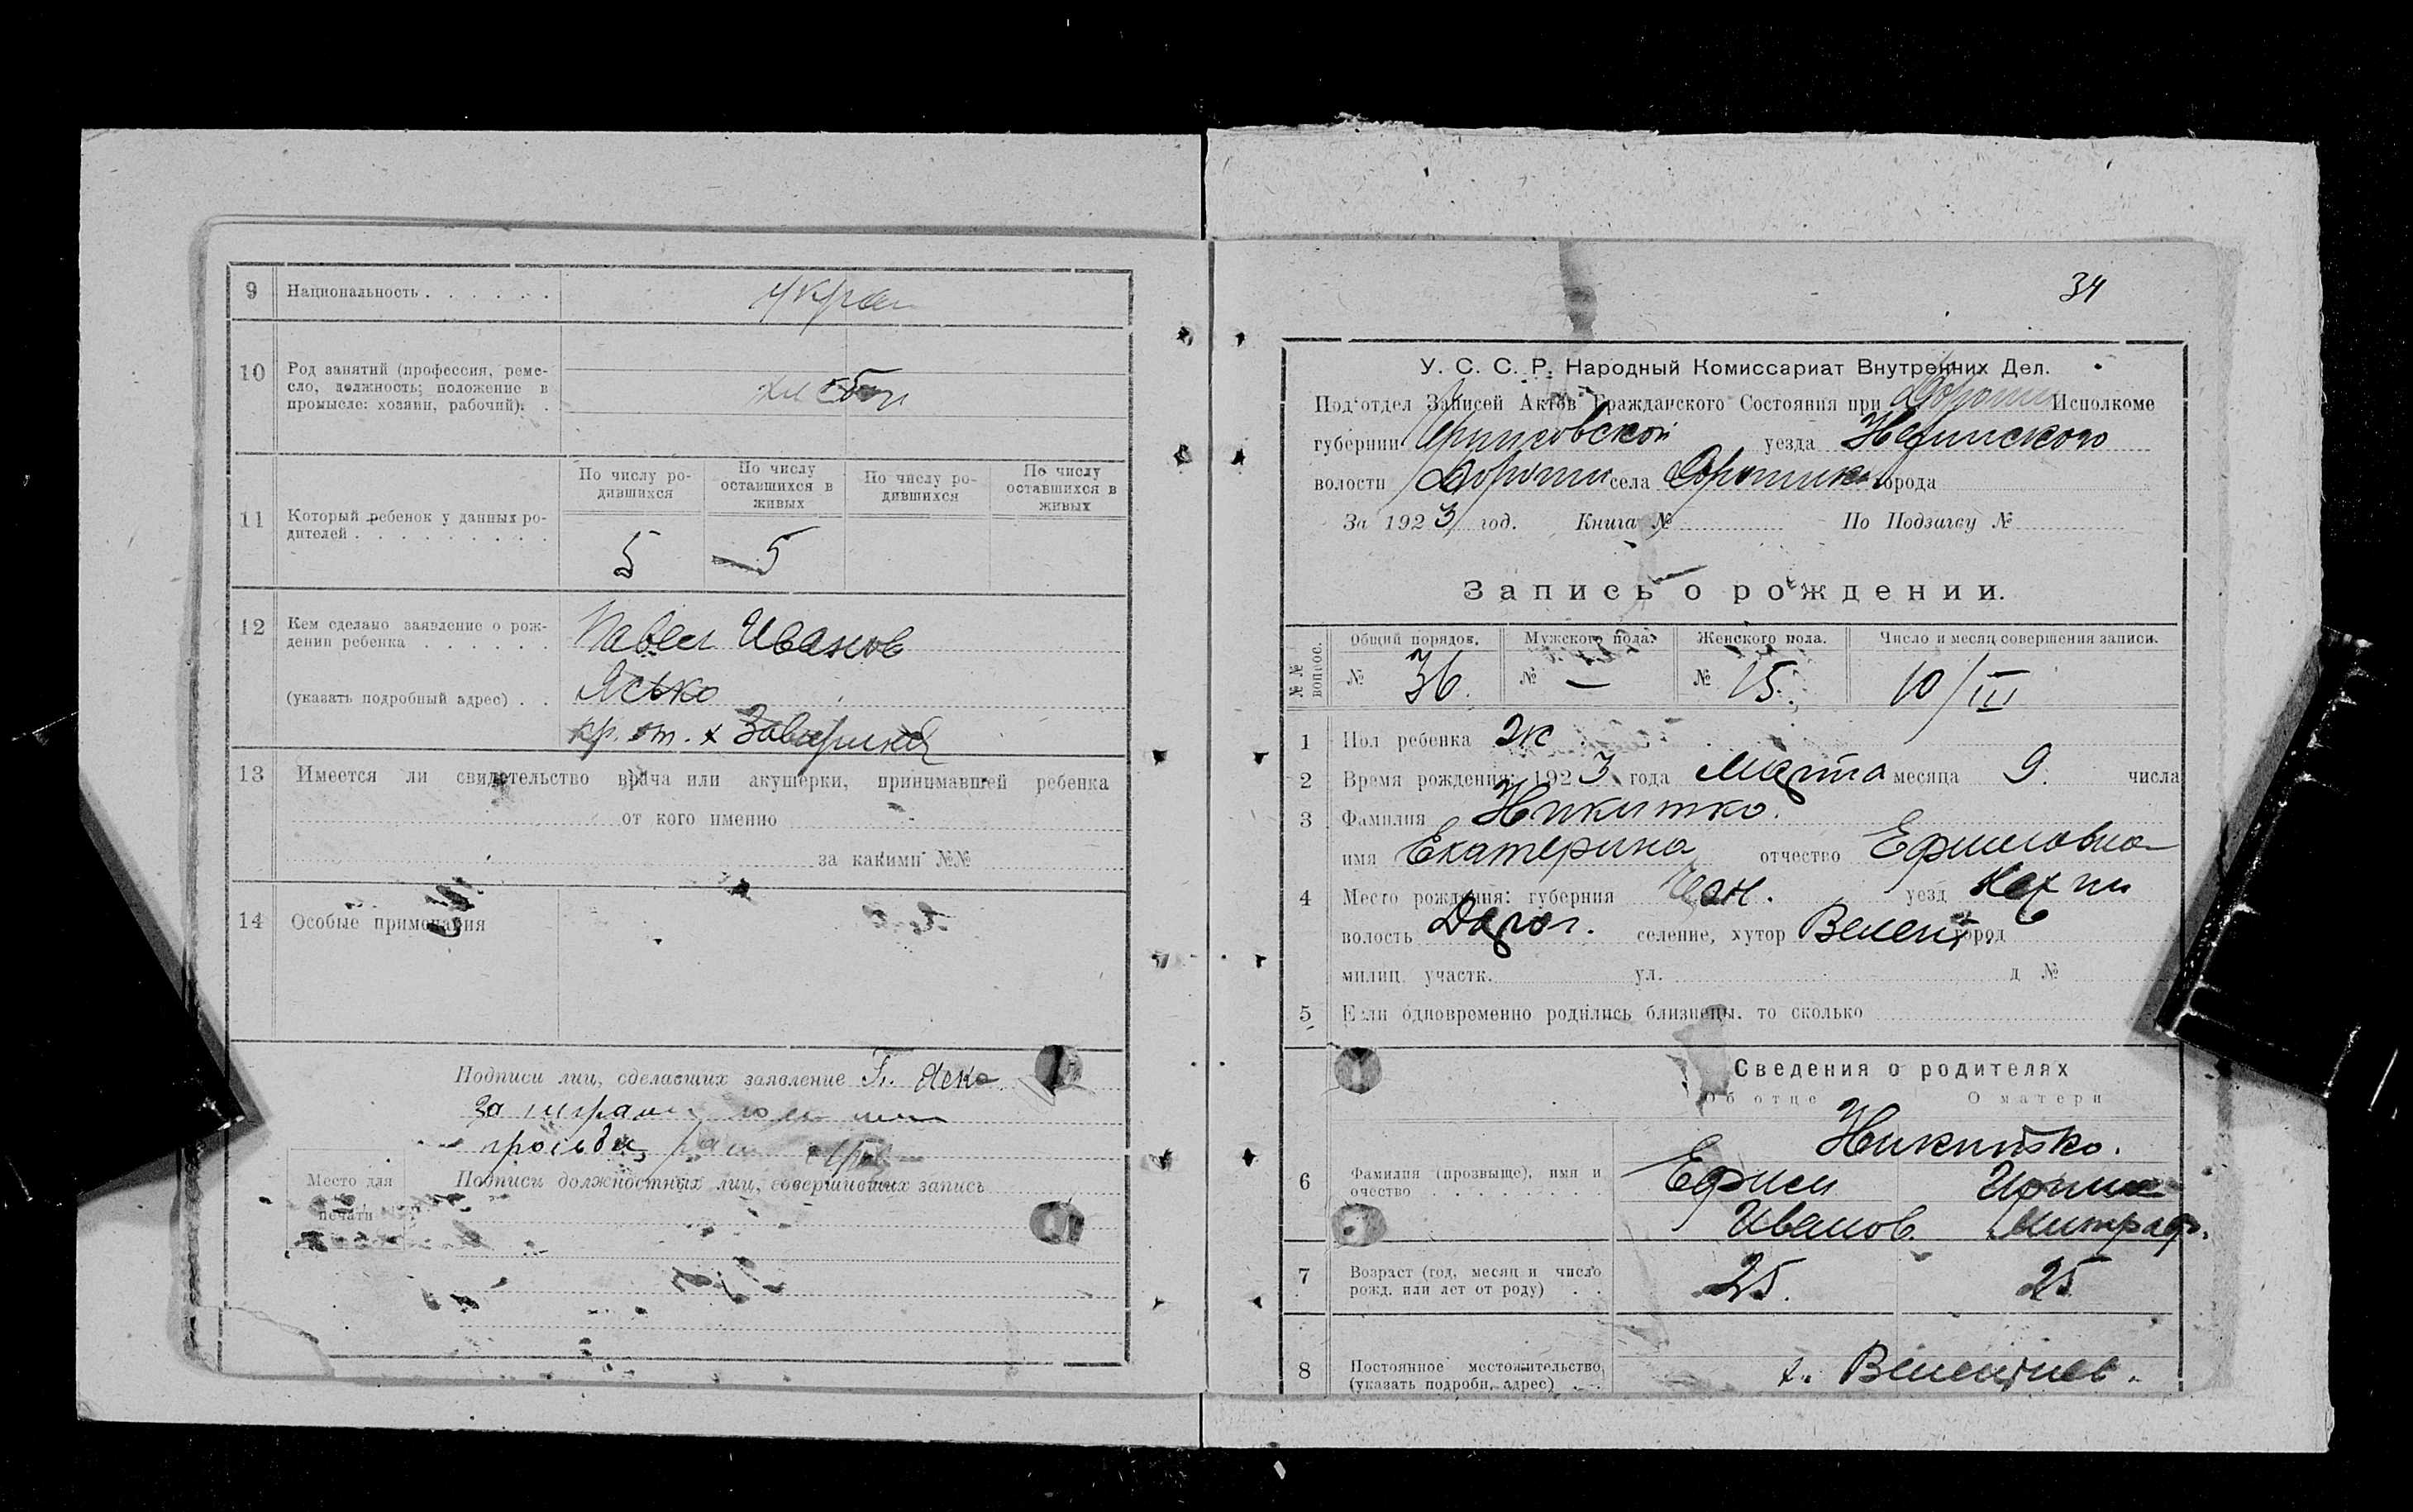 9 Национальность . . . . . . укра
10 Род занятий (профессия, реме-
сло, должность; положение в
промысле: хозяин, рабочий). .
По числу ро-
дившихся
По число
оставшихся в
живых
По числу ро-
дившихся
По числу
оставшихся в
живых
11 Который ребенок у данных ро-
дителей . . . . . . . . . .
5 5
12 Кем сделано заявление о рож-
дении ребенка . . . . . .
Павел Иванов
(указать подробный адрес) . . Ясько
кр. х
13 Имеется ли свидетельство врача или акушерки, принимавшей ребенка
от кого именно
за какими №№
14 Особые примечания
Подписи лиц, сделавших заявление П. Яско
просьбу
Место для
печати
Подписи должностных лиц, совершивших запись
34
У. С. С. Р. Народный Комиссариат Внутренних Дел.
Под‘отдел Записей Актов Гражданского Состояния при Исполкоме
губернии Черниговской уезда Нежинского
волости села города
За 1923 год. Книга № По Подзагсу №
Запись о рождении.
№№ вопрос.
Общий порядов. Мужского пола. Женского пола. Число и месяц совершения записи.
№ 36. № — № 15. 10/III
1 Пол ребенка ж
2 Время рождения: 1923 года Марта месяца 9. числа
3 Фамилия Никитко.
имя Екатерина отчество Ефимовна
4 Место рождения: губерния уезд
волость селение, хутор город
милиц участк. ул. д №
5 Если одновременно родились близнецы. то сколько
Сведения о родителях
Об отце О матери
Никитко.
6 Фамилия (прозвыще), имя и
очество . . . . . . . .
Ефим Ирина
Иванов Митроф.
7 Возраст (год, месяц и число
рожд. или лет от роду) . .
25. 25
8 Постоянное местожительство
(указать подробн. адрес) . .
х.